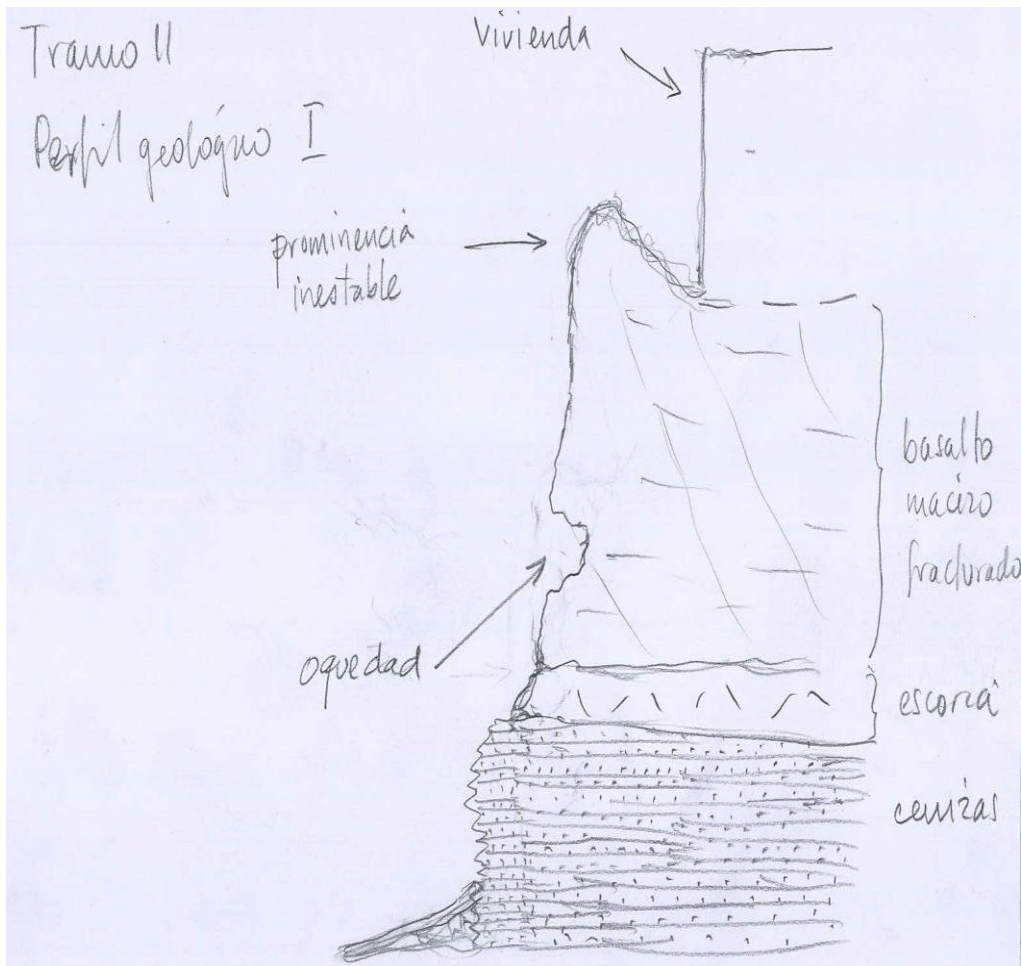 Tramo II
Perfil geológico I
vivienda
prominencia
inestable
basalto
macizo
fracturado
oquedad
escoria
cenizas